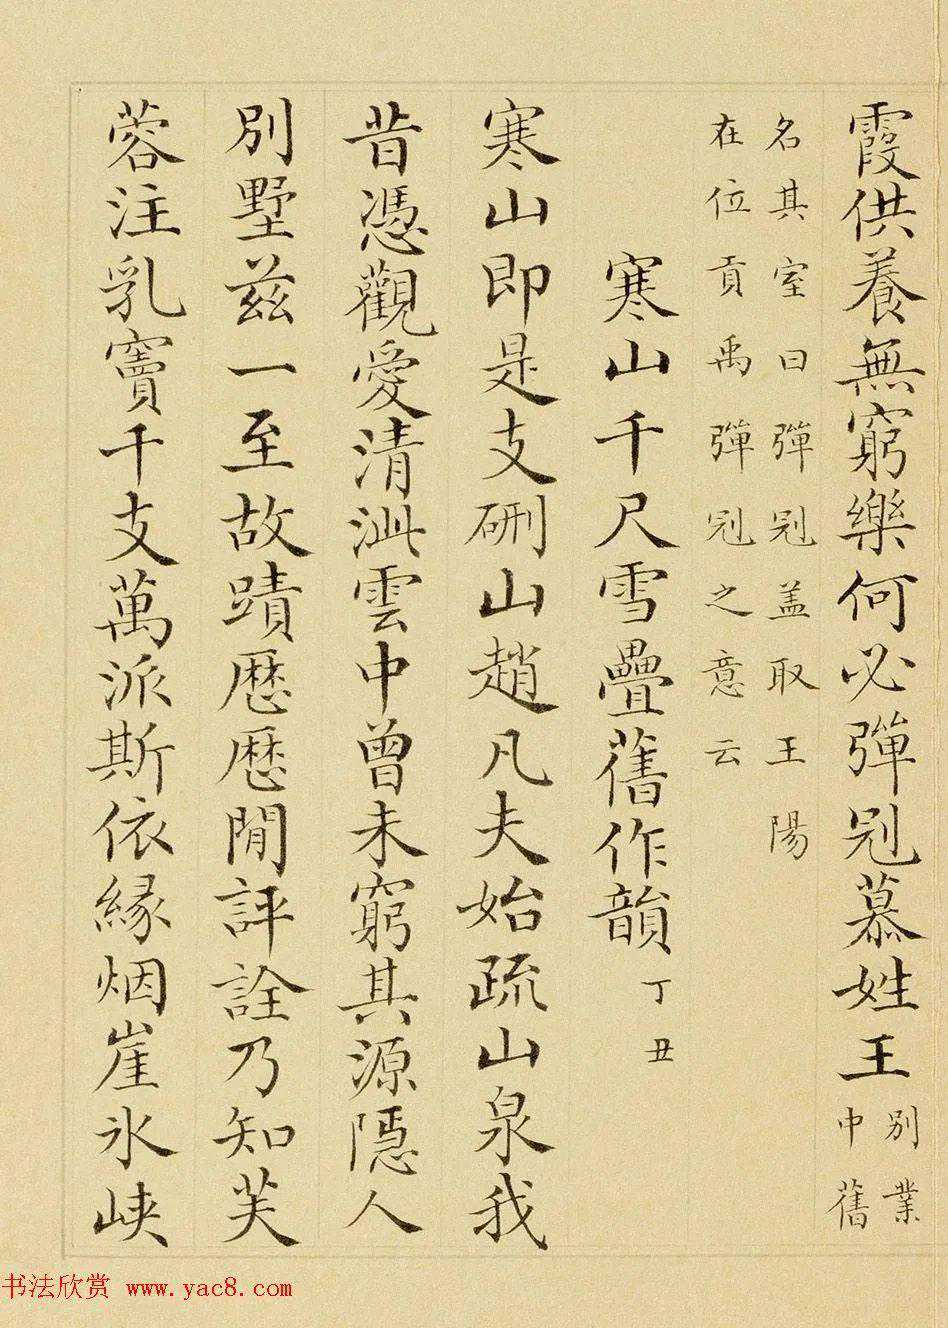 霞供養無窮樂何必彈冠慕姓王別業
中舊
名其室曰彈冠盖取王陽
在位貢禹彈冠之意云
寒山千尺雪疊舊作韻丁丑
寒山即是支硎山趙凡夫始疏山泉我
昔憑觀愛清泚雲中曾未窮其源隱人
別墅兹一至故蹟歷歷閒評詮乃知芙
蓉注乳竇千支萬派斯依緣烟崖氷峡
书法欣赏 www.yac8.com